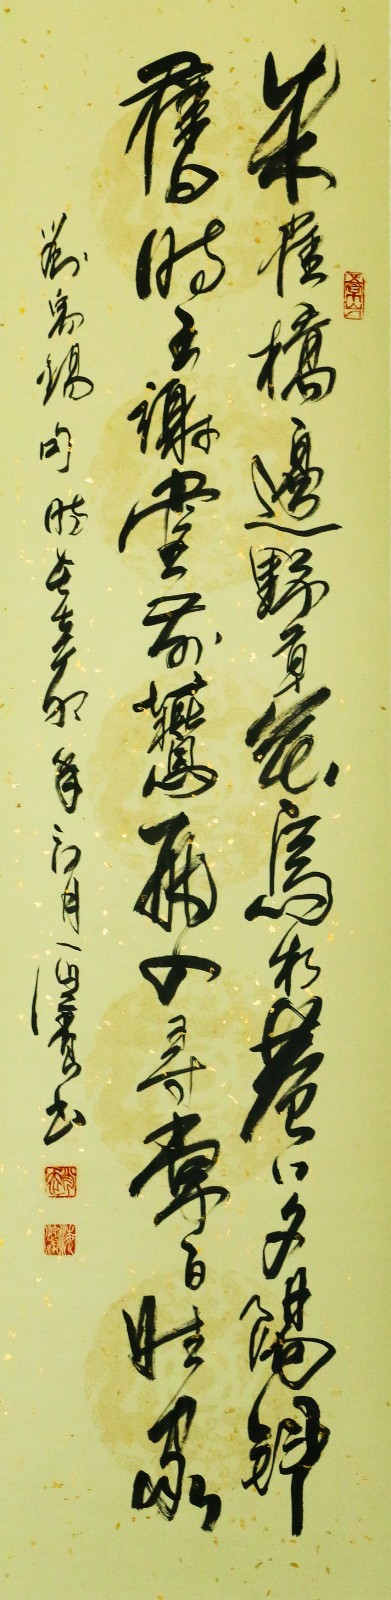 朱雀橋邊野草花烏衣巷口夕陽斜
舊時王謝堂前燕飛入尋常百姓家
劉禹錫句時在癸卯年初月一山濱書